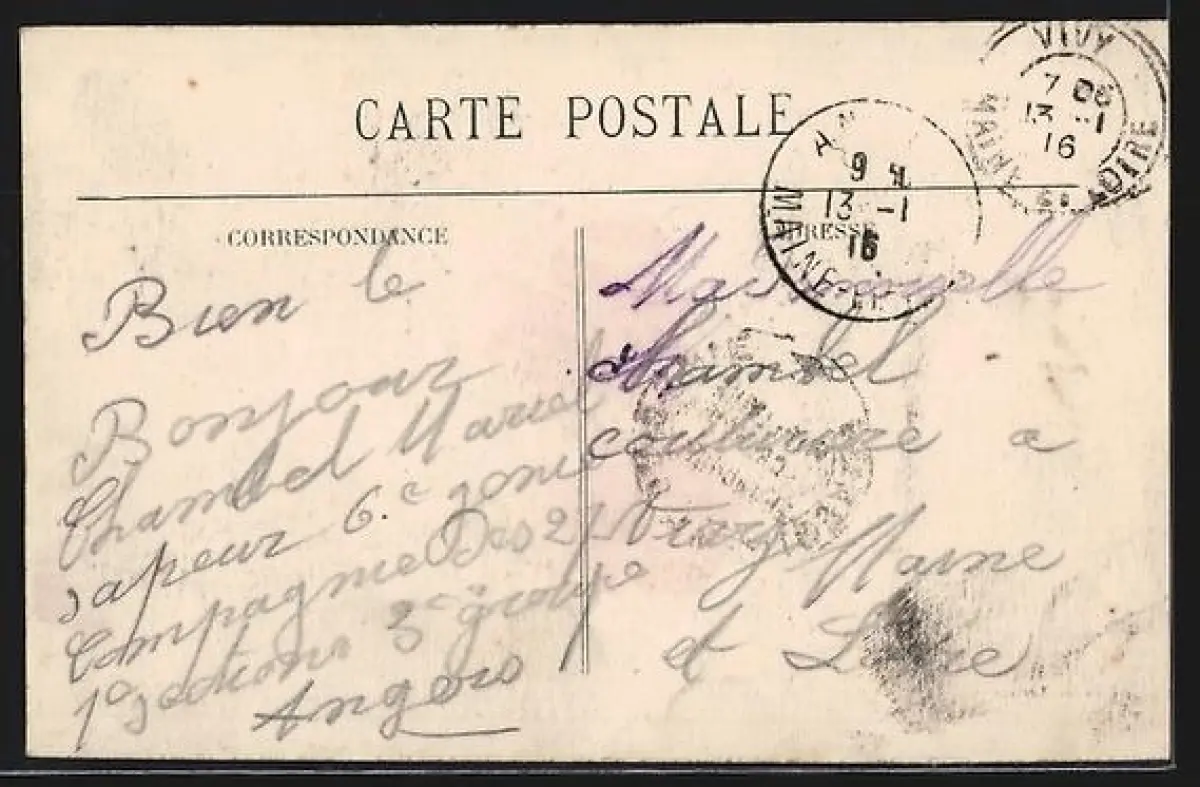 CARTE POSTALE
VIVY
7
13 -1
16
MAINE ET LOIRE
9
13 -1
16
MAINE-ET
CORRESPONDANCE
ADRESSE
Bien le
Bonjour
Chambel Marcel
sapeur 6.e genie
Compagnie
1e section 3e groupe
Angers
Mademoiselle
Chambel
couturiere a
Vivy Maine
et Loire